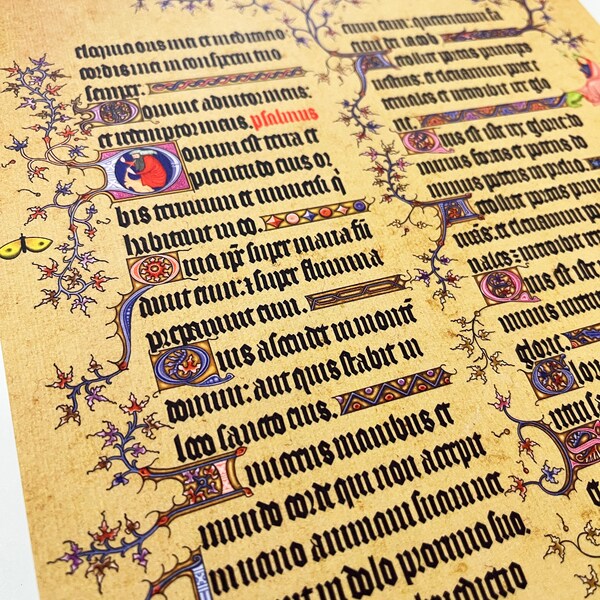 eloquia oris mei et meditacio
cordis mei in conspectu tuo
semper.
Domine adiutor meus:
et redemptor meus. psalmus
Domini est terra et
plenitudo eius or
bis terrarum et universi q̇
habitant in eo.
Quia ip̄e super maria fū
davit eum: ⁊ super flumina
preparavit eum.
Quis ascendet in montē
domini: aut quis stabit in
loco sancto eius.
Innocens manibus et
mundo corde qui non accepit
in vano animam suam nec
in dolo proximo suo.
benedictio
cium eum: querentium fa
ciem dei iacob
Attollite portas principes
vestras: et elevamini porte
eternales et introibit rex glo
rie
Quis est iste rex glorie: do
minus fortis et potens do
minus potens in prelio.
Attollite portas
vr̄as: et elevamini
nales: ⁊ introibit rex
Quis est iste
minus
glorie.